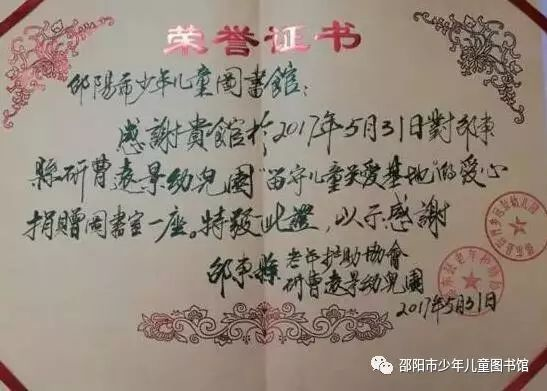 荣誉证书
邵陽市少年儿童圖書館：
感謝貴館於2017年5月31日對邵東
縣研曹袁景幼兒園“留守儿童关爱基地”的爱心
捐赠圖書室一座。特發此證，以示感謝
邵東縣老年护助協會
研曹袁景幼兒園
2017年5月31日
邵阳市少年儿童图书馆